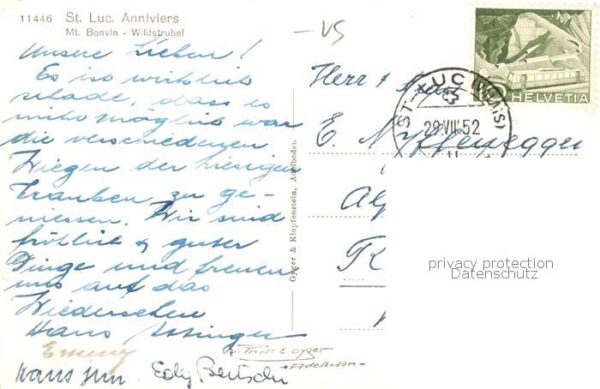 11446 St. Luc. Anniviers
Mt. Bonvin - Wildstrubel
Unsere Lieben!
Es ist wirklich
schade, dass es
nicht möglich war
die verschiedenen
der hiesigen
Trauben zu ge-
niessen. Wir sind
fröhlich & guter
Dinge und freuen
uns auf das
Wiedersehen
Hans
Hans jun. Edy Bertschi
Gyger & Klopfenstein, Adelboden
Photo E. Gyger
Adelboden
HELVETIA
ST-LUC (VALAIS)
29.VII.52
11
Herr &
E. Nyffenegger
privacy protection
Datenschutz